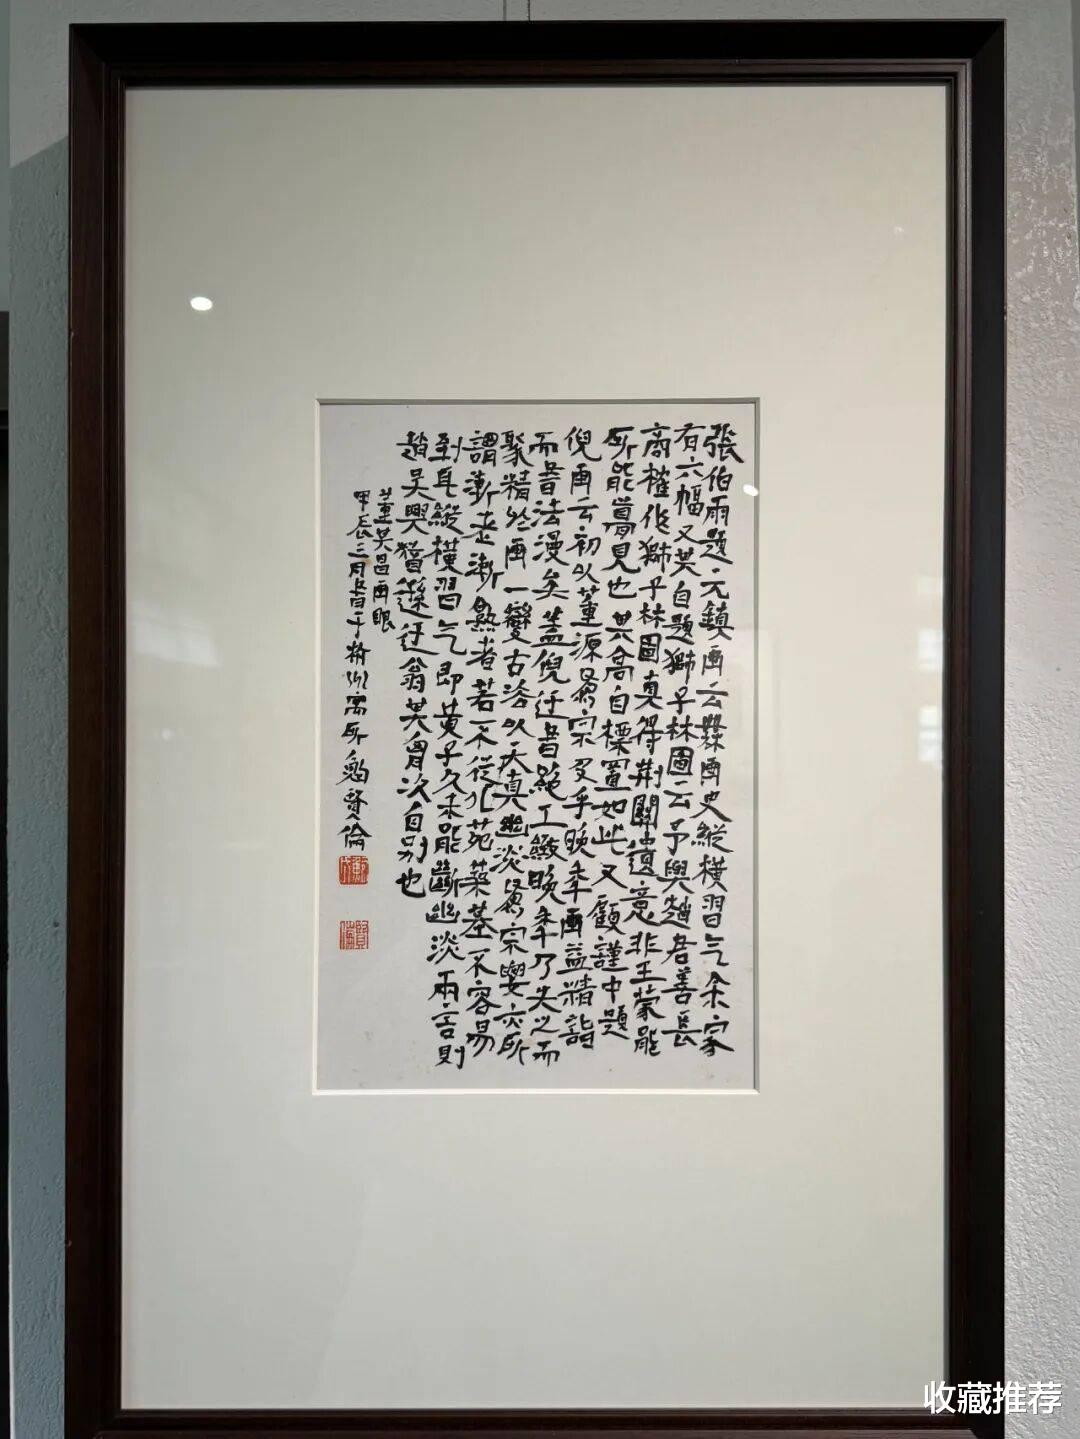 張伯雨題元鎮画云無画史縱橫習气余家
有六幅又其自題獅子林圖云予與趙君善長
商榷作獅子林圖真得荆關遺意非王蒙能
所能夢見也其高自標置如此又顧謹中題
倪画云初以董源爲宗及乎晚年画益精詣
而書法漫矣蓋倪迂書絕工緻晚年乃失之而
聚精於画一變古法以天真幽淡爲宗要亦所
謂漸老漸熟者若不從北苑築基不容易
到耳縱橫習气即黄子久未能斷幽淡兩言則
趙吴興猶遜迂翁其胷次自别也
董其昌画眼
甲辰三月于杭州寓所賢倫
收藏推荐